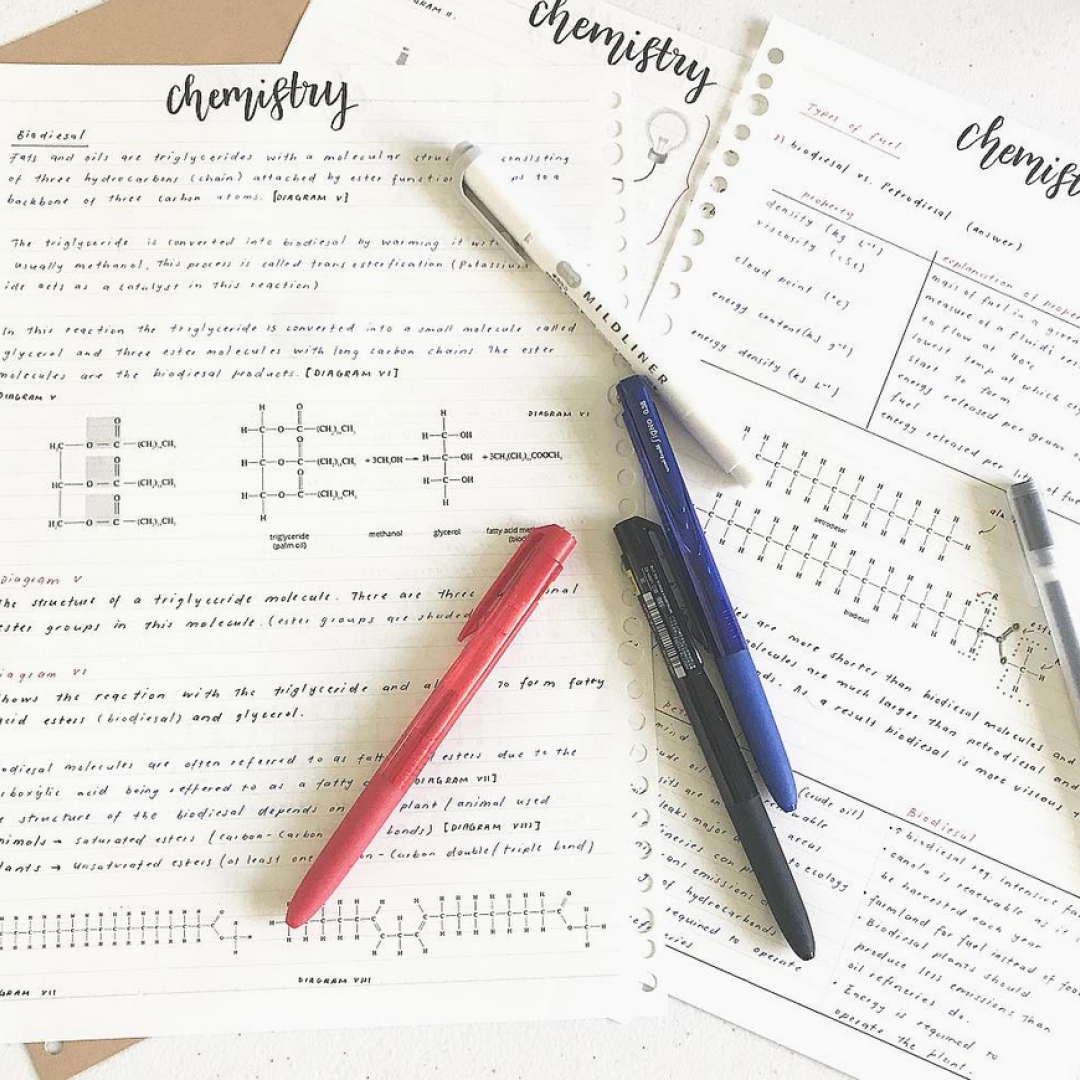 chemistry
Biodiesal
Fats and oils are triglycerides with a molecular struc consisting
of three hydrocarbons (chain) attached by ester function ps to a
backbone of three carbon atoms. [DIAGRAM V]
The triglyceride is converted into biodiesal by warming it
usually methanol. This process is called trans esterification (Potassium
ide acts as a catalyst in this reaction)
In this reaction the triglyceride is converted into a small molecule called
glycerol and three ester molecules with long carbon chains The ester
molecules are the biodiesal products. [DIAGRAM VI]
DIAGRAM V
DIAGRAM VI
triglyceride
(palm oil)
methanol
glycerol
fatty acid
+ 3CH₃OH
Diagram V
The structure of a triglyceride molecule. There are three onal
ester groups in this molecule. (ester groups are shaded
iagram VI
shows the reaction with the triglyceride and al to form fatty
acid esters (biodiesal) and glycerol.
odiesal molecules are often referred to as fatt esters due to the
rboxylic acid being reffered to as a fatty DIAGRAM VII]
e structure of the biodiesal depends on plant / animal used
nimals → saturated esters (carbon-carbon bonds) [DIAGRAM VIII]
lants → unsaturated esters (at least one on-carbon double/triple bond)
GRAM VII
DIAGRAM VIII
GRAM II.
chemistry
chemist
Types of fuel
biodiesal vs. Petrodiesal (answer)
property
density (kg L⁻¹)
viscosity (cSt)
cloud point (°c)
energy content (kj g⁻¹)
energy density (kj L⁻¹)
explanation of proper
mass of fuel in a given
measure of a fluid's
to flow at 40°c
lowest temp at which
start to form
energy released per gram
fuel
energy released per lit of fue
petrodiesel
biodiesel
es are more shorter than biodiesal molecules and
olecules are much larger than petrodiesal and
ds. As a result biodiesal is more viscous
(crude oil)
leaks major
areas
to ecology
emissions
of hydrocarbons
required to operate
Biodiesal
biodiesal req intensive fa
canola is renewable as it
be harvested each year
farmland for fuel instead of foo
Biodiesal plants should
produce less emissions than
oil refineries do.
Energy is required to
operate the plant.
MILDLINER
uni-ball SIGNO 0.38